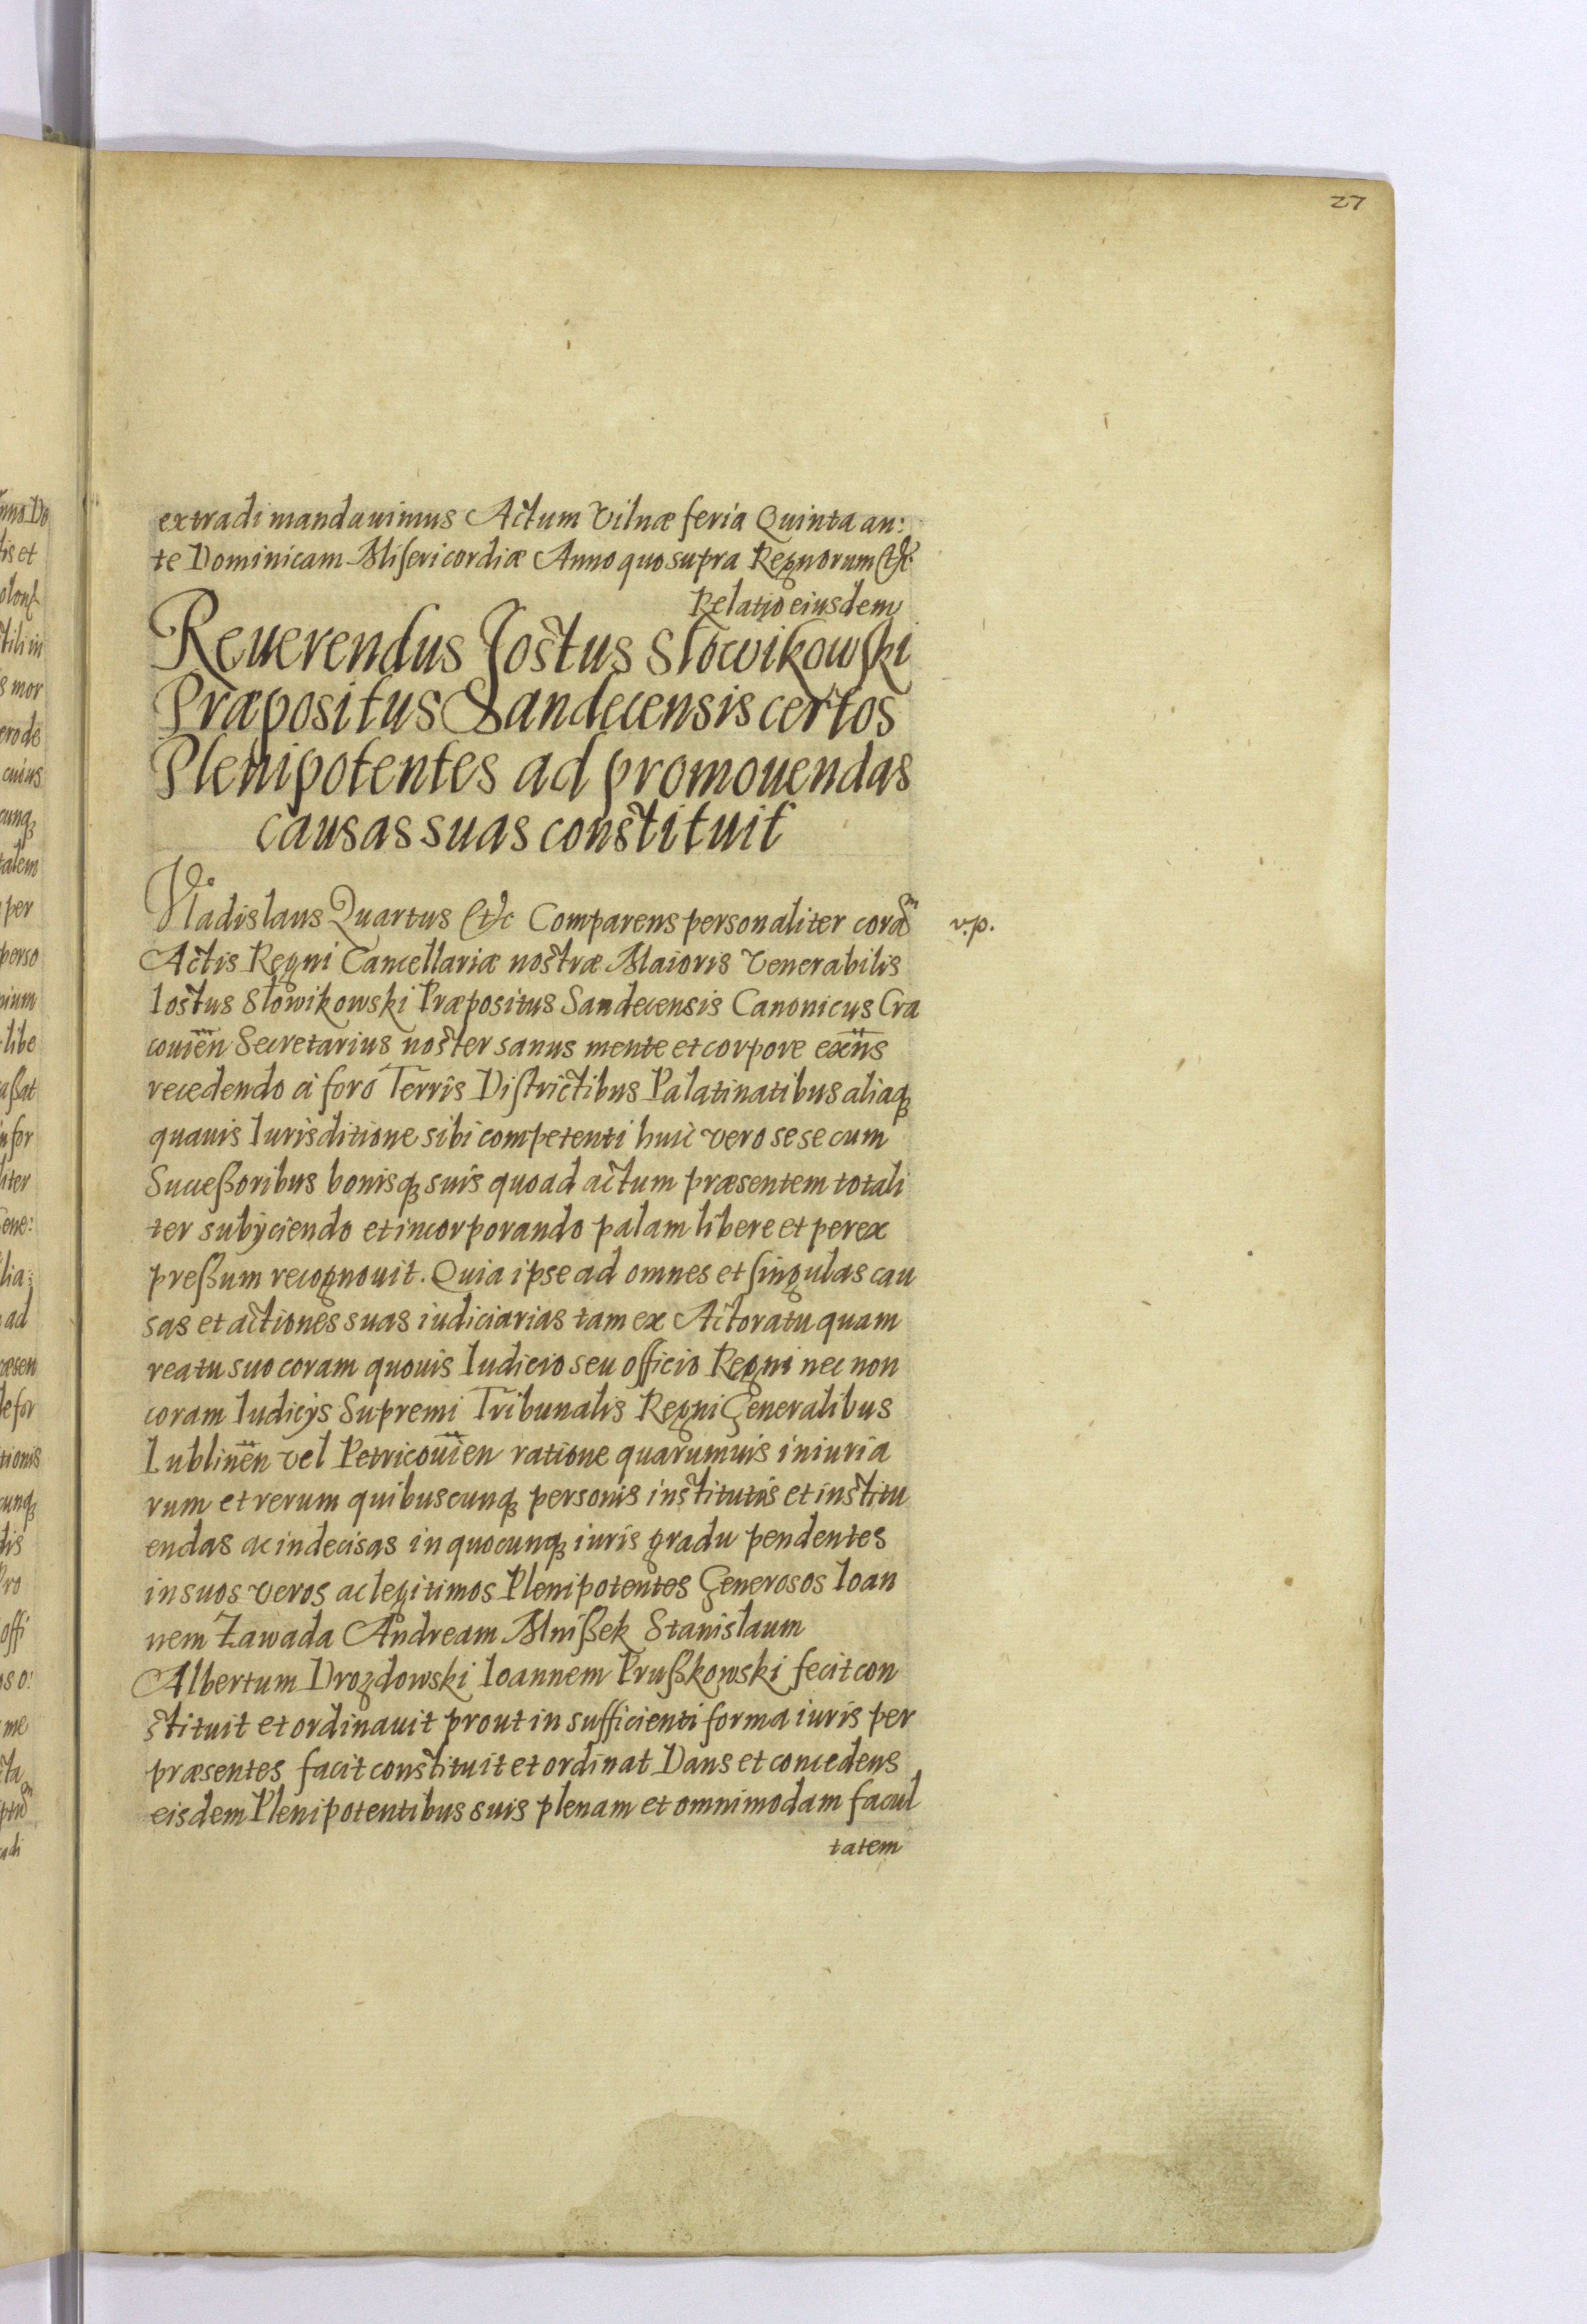 27
extradi mandauimus Actum Vilnæ feria Quinta an:
te Dominicam Misericordiæ Anno quo supra Regnorum etc.
Relatio eiusdem
Reuerendus Jostus Slowikowski
Præpositus Sandecensis certos
Plenipotentes ad promouendas
causas suas constituit
Vladislaus Quartus etc Comparens personaliter corã v.p.
Actis Regni Cancellariæ nostræ Maioris Venerabilis
Iostus Slowikowski Præpositus Sandecensis Canonicus Cra
couiẽn Secretarius noster sanus mente et corpore exñs
recedendo à foro Terris Districtibus Palatinatibus aliaqꝫ
quauis Iurisditione sibi competenti huic vero sese cum
Suceßoribus bonisqꝫ suis quoad actum præsentem totali
ter subÿciendo et incorporando palam libere et per ex
preßum recognouit. Quia ipse ad omnes et singulas cau
sas et actiones suas iudiciarias tam ex Actoratu quam
reatu suo coram quouis Iudicio seu officio Regni nec non
coram Iudicÿs Supremi Tribunalis Regni Generalibus
Lublinẽn vel Petricouiẽn ratione quarumuis iniuria
rum et rerum quibuscunqꝫ personis institutis et institu
endas ac indecisas in quocunqꝫ iuris gradu pendentes
in suos veros ac legitimos Plenipotentes Generosos Ioan
nem Zawada Andream Mnißek Stanislaum
Albertum Drozdowski Ioannem Prußkowski fecit con
stituit et ordinauit prout in sufficienti forma iuris per
præsentes facit constituit et ordinat Dans et concedens
eisdem Plenipotentibus suis plenam et omnimodam facul
tatem